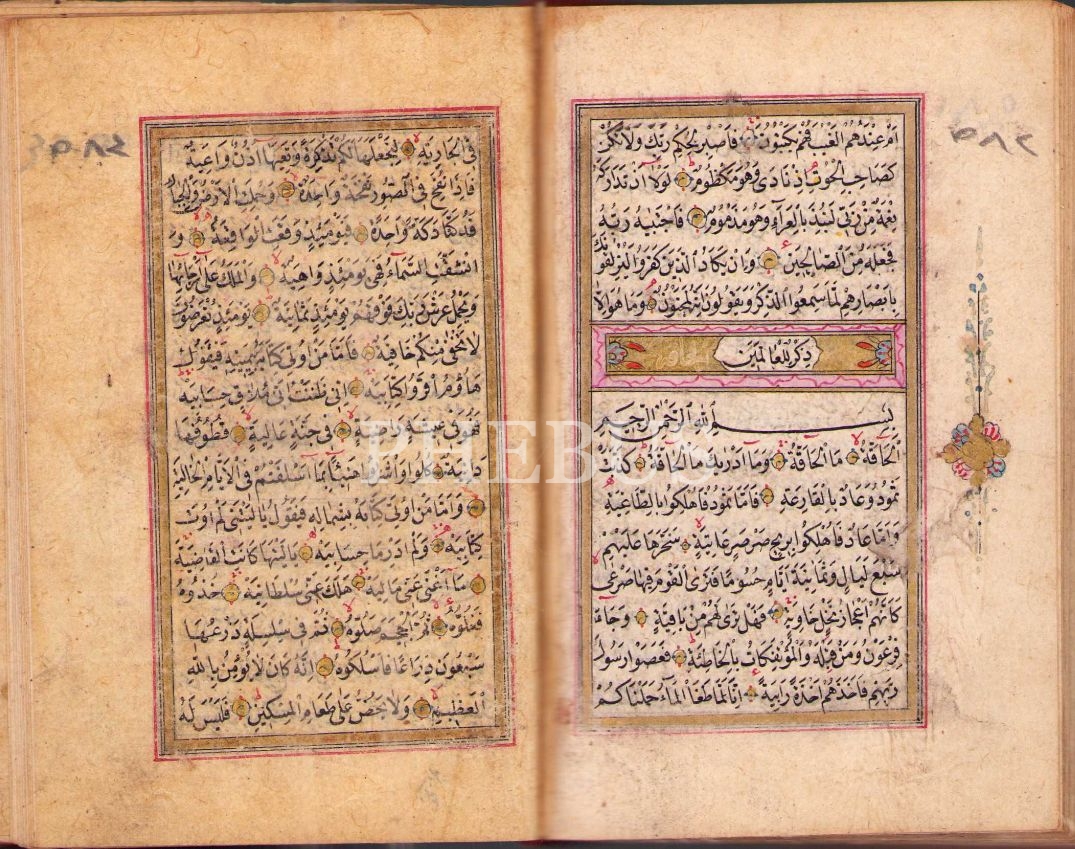 ام عندهم الغيب فهم يكتبون فاصبر لحكم ربك ولا تكن
كصاحب الحوت اذ نادى وهو مكظوم لولا ان تداركه
نعمة من ربه لنبذ بالعراء وهو مذموم فاجتبيه ربه
فجعله من الصالحين وان يكاد الذين كفروا ليزلقونك
بابصارهم لما سمعوا الذكر ويقولون انه لمجنون وما هو الا
ذكر للعالمين
بسم الله الرحمن الرحيم
الحاقة ما الحاقة وما ادريك ما الحاقة كذبت
ثمود وعاد بالقارعة فاما ثمود فاهلكوا بالطاغية
واما عاد فاهلكوا بريح صرصر عاتية سخرها عليهم
سبع ليال وثمانية ايام حسوما فترى القوم فيها صرعى
كانهم اعجاز نخل خاوية فهل ترى لهم من باقية وجاء
فرعون ومن قبله والمؤتفكات بالخاطئة فعصوا رسول
ربهم فاخذهم اخذة رابية انا لما طغا الماء حملناكم
في الجارية لنجعلها لكم تذكرة وتعيها اذن واعية
فاذا نفخ في الصور نفخة واحدة وحملت الارض والجبال
فدكتا دكة واحدة فيومئذ وقعت الواقعة و
انشقت السماء فهي يومئذ واهية والملك على ارجائها
ويحمل عرش ربك فوقهم يومئذ ثمانية يومئذ تعرضون
لا تخفى منكم خافية فاما من اوتى كتابه بيمينه فيقول
هاؤم اقرؤا كتابيه انى ظننت انى ملاق حسابيه
فهو في عيشة راضية في جنة عالية قطوفها
دانية كلوا واشربوا هنيئا بما اسلفتم في الايام الخالية
واما من اوتى كتابه بشماله فيقول يا ليتنى لم اوت
كتابيه ولم ادر ما حسابيه يا ليتها كانت القاضية
ما اغنى عنى ماليه هلك عنى سلطانيه خذوه
فغلوه ثم الجحيم صلوه ثم في سلسلة ذرعها
سبعون ذراعا فاسلكوه انه كان لا يؤمن بالله
العظيم ولا يحض على طعام المسكين فليس له
PHEBUS